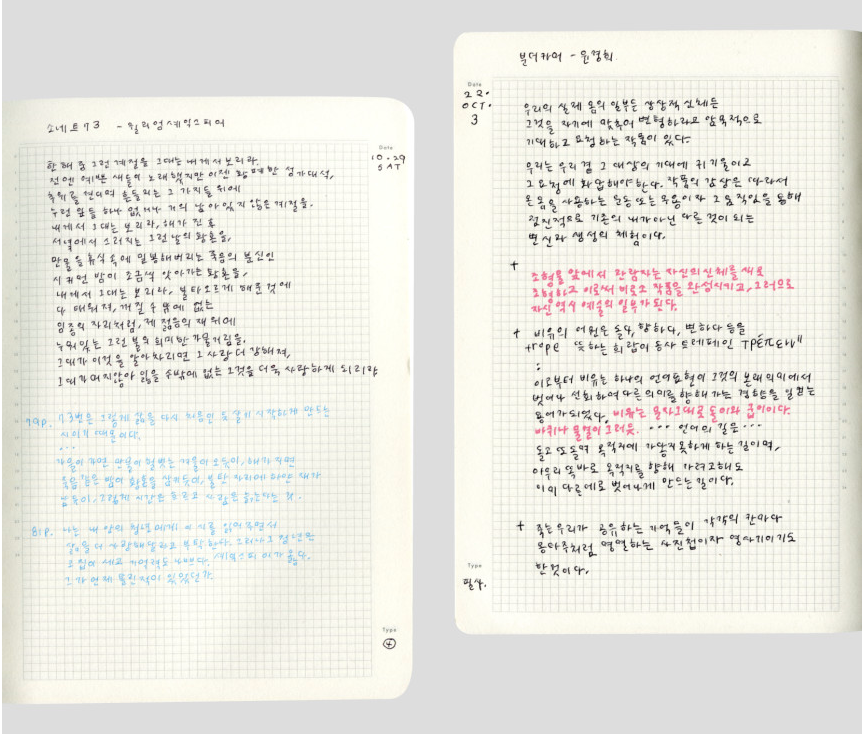 소네트73 - 윌리엄셰익스피어
Date
10.29
SAT
한 해 중 그런 계절을 그대는 내게서 보리라
전엔 예쁜 새들이 노래했지만 이젠 황폐한 성가대석,
추위를 견디며 흔들리는 그 가지들 위에
누런 잎들 하나 없거나 거의 남아있지 않은 계절을.
내게서 그대는 보리라, 해가 진 후
서녘에서 스러지는 그런 날의 황혼을,
만물을 휴식 속에 밀봉해버리는 죽음의 분신인
시커먼 밤이 조금씩 앗아가는 황혼을,
내게서 그대는 보리라, 불타오르게 해준 것에
다 태워져, 꺼질 수 밖에 없는
임종의 자리처럼, 제 젊음의 재 위에
누워있는 그런 불의 희미한 가물거림을,
그대가 이것을 알아차리면 그 사랑 더 강해져,
그대가 머지않아 잃을 수밖에 없는 그것을 더욱 사랑하게 되리라
79p. 73번은 그렇게 삶을 다시 처음인 듯 살기 시작하게 만드는
시이기 때문이다.
...
가을이 가면 만물이 헐벗는 겨울이 오듯이, 해가 지면
죽음 같은 밤이 황혼을 삼키듯이, 불탄 자리에 하얀 재가
남듯이, 그렇게 시간은 흐르고 사람은 늙는다는 것.
81p. 나는 내 안의 청년에게 이 시를 읽어주면서
삶을 더 사랑해달라고 부탁한다. 그러나 그 청년은
고집이 세고 기억력도 나쁘다. 셰익스피어가 옳다.
그가 언제 틀린 적이 있었던가.
Type
④
분더카머 - 윤경희.
Date
22.
OCT.
3
우리의 실제 몸의 일부든 상상적 신체든
그것을 자기에 맞추어 변형하라고 암묵적으로
기대하고 요청하는 작품이 있다.
우리는 우리 곁 그 대상의 기대에 귀 기울이고
그 요청에 화답해야 한다. 작품의 감상은 따라서
온 몸을 사용하는 운동 또는 무용이라 그 움직임을 통해
점진적으로 기존의 내가 아닌 다른 것이 되는
변신과 생성의 체험이다.
+ 조형물 앞에서 관람자는 자신의 신체를 새로
조형하고 이로써 비로소 작품을 완성시키고, 그러므로
자신 역시 예술의 일부가 된다.
+ 비유의 어원은 돌다, 향하다, 변하다 등을
trope 뜻하는 희랍어 동사 트레페인 τρέπειν"
:
이로부터 비유는 하나의 언어표현이 그것의 본래 의미에서
벗어나 선회하여 다른 의미를 향해 가는 경향을 일컫는
용어가 되었다. 비유는 문자 그대로 돌이와 굽이이다.
바퀴나 물결이 그러듯. ··· 언어의 길은 ···
돌고 또 돌며 목적지에 가닿지 못하게 하는 길이며,
아무리 똑바로 목적지를 향해 가려고 해도
이미 다른 데로 벗어나게 만드는 길이다.
+ 책은 우리가 공유하는 기억들이 각각의 칸마다
옹아주처럼 명멸하는 사진첩이자 영사기이기도
한 것이다.
Type
필사.